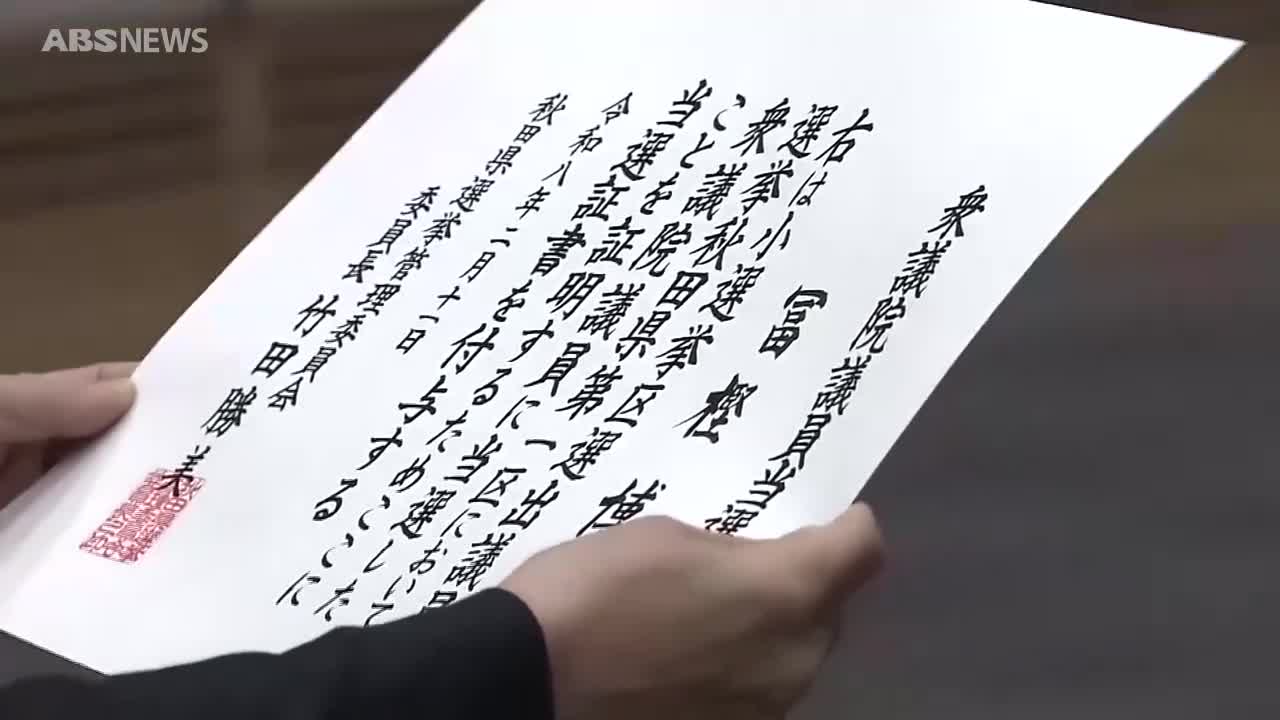 ABSNEWS
衆議院議員当選
冨樫博
右は小選挙区選出議員
選挙秋田県第一区において
衆議院議員に当選した
ことを証明するためここに
当選証書を付与する
令和八年二月十一日
秋田県選挙管理委員会
委員長 竹田勝美